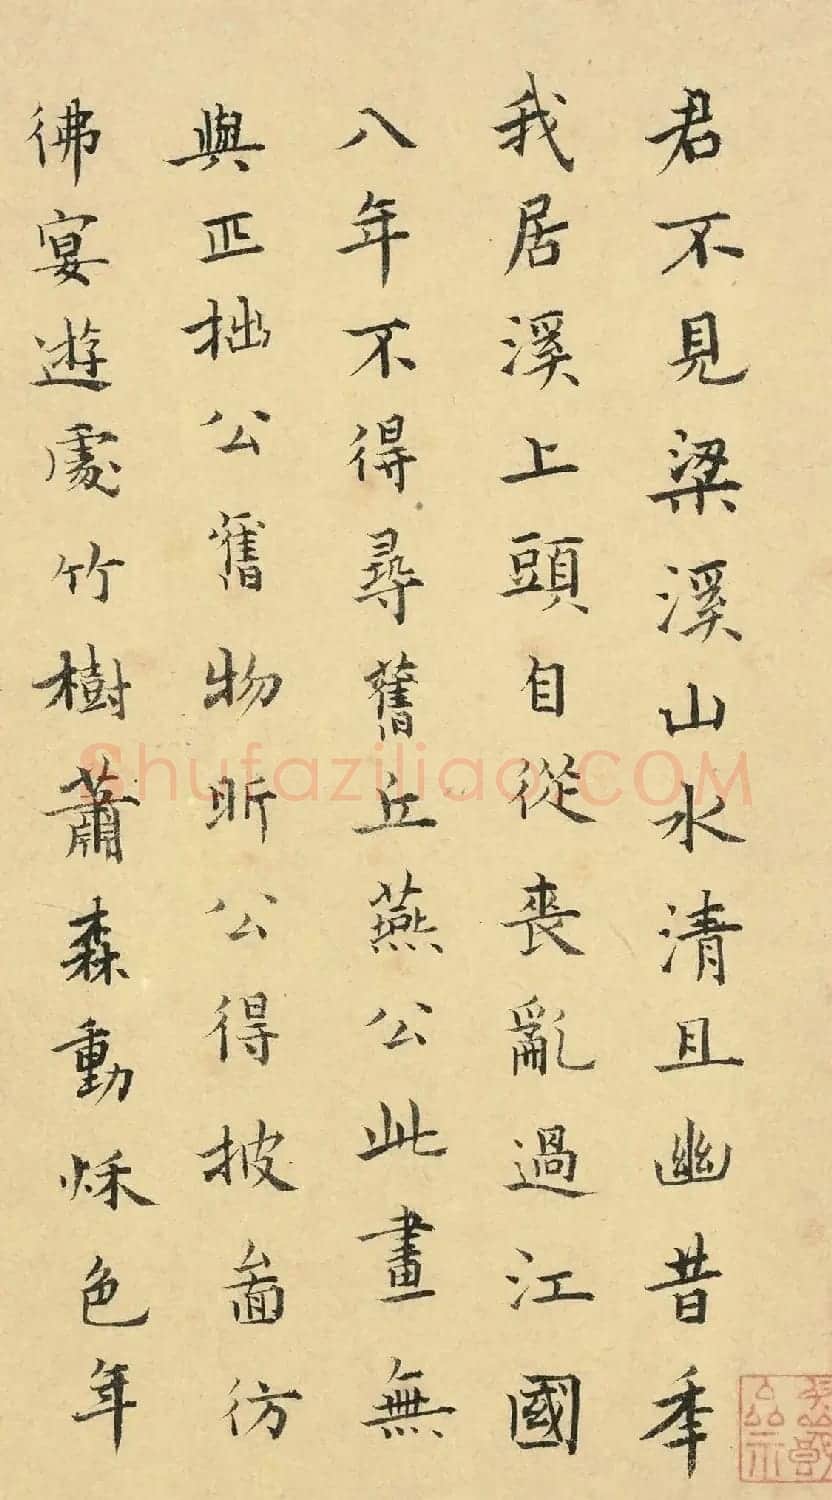 君不見梁溪山水清且幽昔年
我居溪上頭自從喪亂過江國
八年不得尋舊丘燕公此畫無
與匹拙公舊物昕公得披圖彷
彿宴遊處竹樹蕭森動秌色年
Shufaziliao.COM